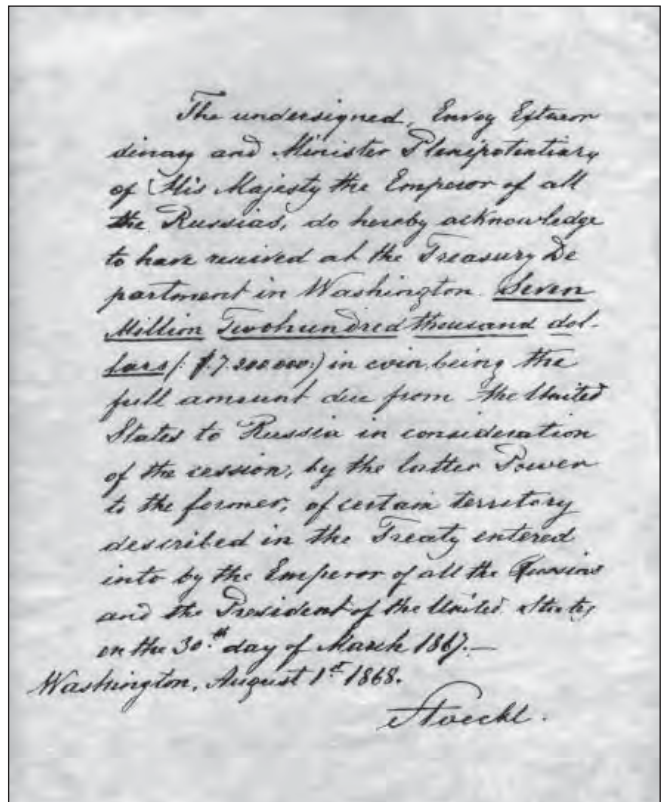 The undersigned, Envoy Extraor
dinary and Minister Plenipotentiary
of His Majesty the Emperor of all
the Russias, do hereby acknowledge
to have received at the Treasury De
partment in Washington Seven
Million Twohundred thousand dol-
lars (: $7.200.000:) in coin, being the
full amount due from the United
States to Russia in consideration
of the cession, by the latter Power
to the former, of certain territory
described in the Treaty entered
into by the Emperor of all the Russias
and the President of the United States
on the 30.th day of March 1867.—
Washington, August 1st 1868.
Stoeckl.